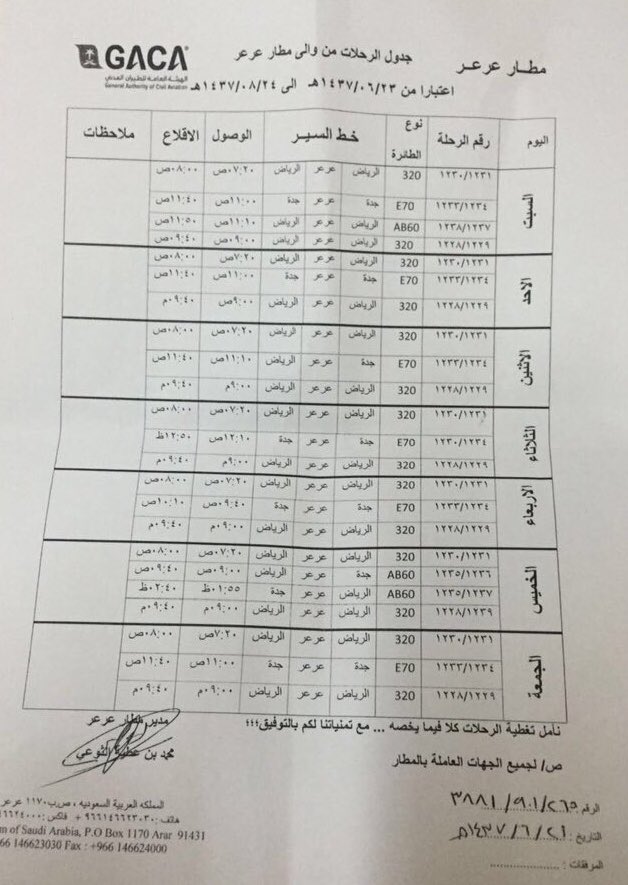 GACA
الهيئة العامة للطيران المدني
General Authority of Civil Aviation
مطار عرعر
جدول الرحلات من والى مطار عرعر
اعتبارا من ١٤٣٧/٠٦/٢٣هـ الى ١٤٣٧/٠٨/٢٤هـ
اليوم رقم الرحلة نوع الطائرة خط السير الوصول الاقلاع ملاحظات
السبت
١٢٣٠/١٢٣١ 320 الرياض عرعر الرياض ٠٧:٢٠ص ٠٨:٠٠ص
١٢٣٣/١٢٣٤ E70 جدة عرعر جدة ١١:٠٠ص ١١:٤٠ص
١٢٣٨/١٢٣٧ AB60 الرياض عرعر الرياض ١١:١٠ص ١١:٥٠ص
١٢٢٨/١٢٢٩ 320 الرياض عرعر الرياض ٠٩:٠٠ص ٠٩:٤٠ص
الاحد
١٢٣٠/١٢٣١ 320 الرياض عرعر الرياض ٧:٢٠ص ٠٨:٠٠ص
١٢٣٣/١٢٣٤ E70 جدة عرعر جدة ١١:٠٠ص ١١:٤٠ص
١٢٢٨/١٢٢٩ 320 الرياض عرعر الرياض ٠٩:٠٠ص ٠٩:٤٠م
الاثنين
١٢٣٠/١٢٣١ 320 الرياض عرعر الرياض ٠٧:٢٠ص ٠٨:٠٠ص
١٢٣٣/١٢٣٤ E70 جدة عرعر الرياض ١١:١٠ص ١١:٤٠ص
١٢٢٨/١٢٢٩ 320 الرياض عرعر الرياض ٠٩:٠٠م ٠٩:٤٠م
الثلاثاء
١٢٣٠/١٢٣١ 320 الرياض عرعر الرياض ٠٧:٢٠ص ٠٨:٠٠ص
١٢٣٠/١٢٣٤ E70 جدة عرعر جدة ١٢:١٠ص ١٢:٥٠ظ
١٢٢٨/١٢٢٩ 320 الرياض عرعر الرياض ٠٩:٠٠م ٠٩:٤٠م
الاربعاء
١٢٣٠/١٢٣١ 320 الرياض عرعر الرياض ٠٧:٢٠ص ٠٨:٠٠ص
١٢٣٣/١٢٣٤ E70 جدة عرعر جدة ٠٩:٤٠ص ١٠:١٠ص
١٢٢٨/١٢٢٩ 320 الرياض عرعر الرياض ٠٩:٠٠م ٠٩:٤٠م
الخميس
١٢٣٠/١٢٣١ 320 الرياض عرعر الرياض ٠٧:٢٠ص ٠٨:٠٠ص
١٢٣٥/١٢٣٦ AB60 جدة عرعر الرياض ٠٩:٠٠ص ٠٩:٤٠ص
١٢٣٥/١٢٣٧ AB60 الرياض عرعر جدة ٠١:٥٥ظ ٠٢:٤٠ظ
١٢٢٨/١٢٣٩ 320 الرياض عرعر الرياض ٠٩:٠٠م ٠٩:٤٠م
الجمعة
١٢٣٠/١٢٣١ 320 الرياض عرعر الرياض ٧:٢٠ص ٠٨:٠٠ص
١٢٣٣/١٢٣٤ E70 جدة عرعر جدة ١١:٠٠ص ١١:٤٠ص
١٢٢٨/١٢٢٩ 320 الرياض عرعر الرياض ٠٩:٠٠م ٠٩:٤٠م
نأمل تغطية الرحلات كلا فيما يخصه ... مع تمنياتنا لكم بالتوفيق؛؛؛
مدير مطار عرعر
محمد بن عطية النوعي
ص/ لجميع الجهات العاملة بالمطار
الرقم ٣٨٨١/٩٠١/٢٦٥
التاريخ: ١٤٣٧/٦/٢١هـ
المرفقات : ....................
المملكه العربية السعوديه ، ص.ب ١١٧٠ عرعر
هاتف: ٩٦٦١٤٦٦٢٣٠٣٠ + فاكس:
m of Saudi Arabia, P.O Box 1170 Arar 91431
66 146623030 Fax : +966 146624000